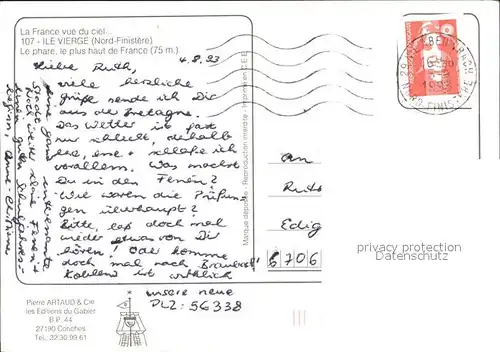 La France vue du ciel...
107 - ILE VIERGE (Nord-Finistère)
Le phare, le plus haut de France (75 m.)
4.8.93
Liebe Ruth,
viele herzliche
Grüße sende ich Dir
aus der Bretagne.
Das Wetter ist fast
nur schlecht, deshalb
lese, esse + schlafe ich
vorallem. Was machst
Du in den Ferien?
Wie waren die Prüfun-
gen überhaupt?
Bitte, laß doch mal
wieder etwas von Dir
hören! Oder komme
doch mal nach Brauweil
Koblenz ist wirklich
eine ganz interessante
Stadt.
Noch weiter schöne Ferien +
einen guten Schuljahres-
beginn, Anne-Christine
unsere neue
PLZ: 56338
Marque déposée - Reproduction interdite - Imprimé en C.E.E.
An
Ruth
Edig
6706
privacy protection
Datenschutz
Pierre ARTAUD & Cie
les Editions du Gabier
B.P. 44
27190 Conches
Tel. 32.30.99.61